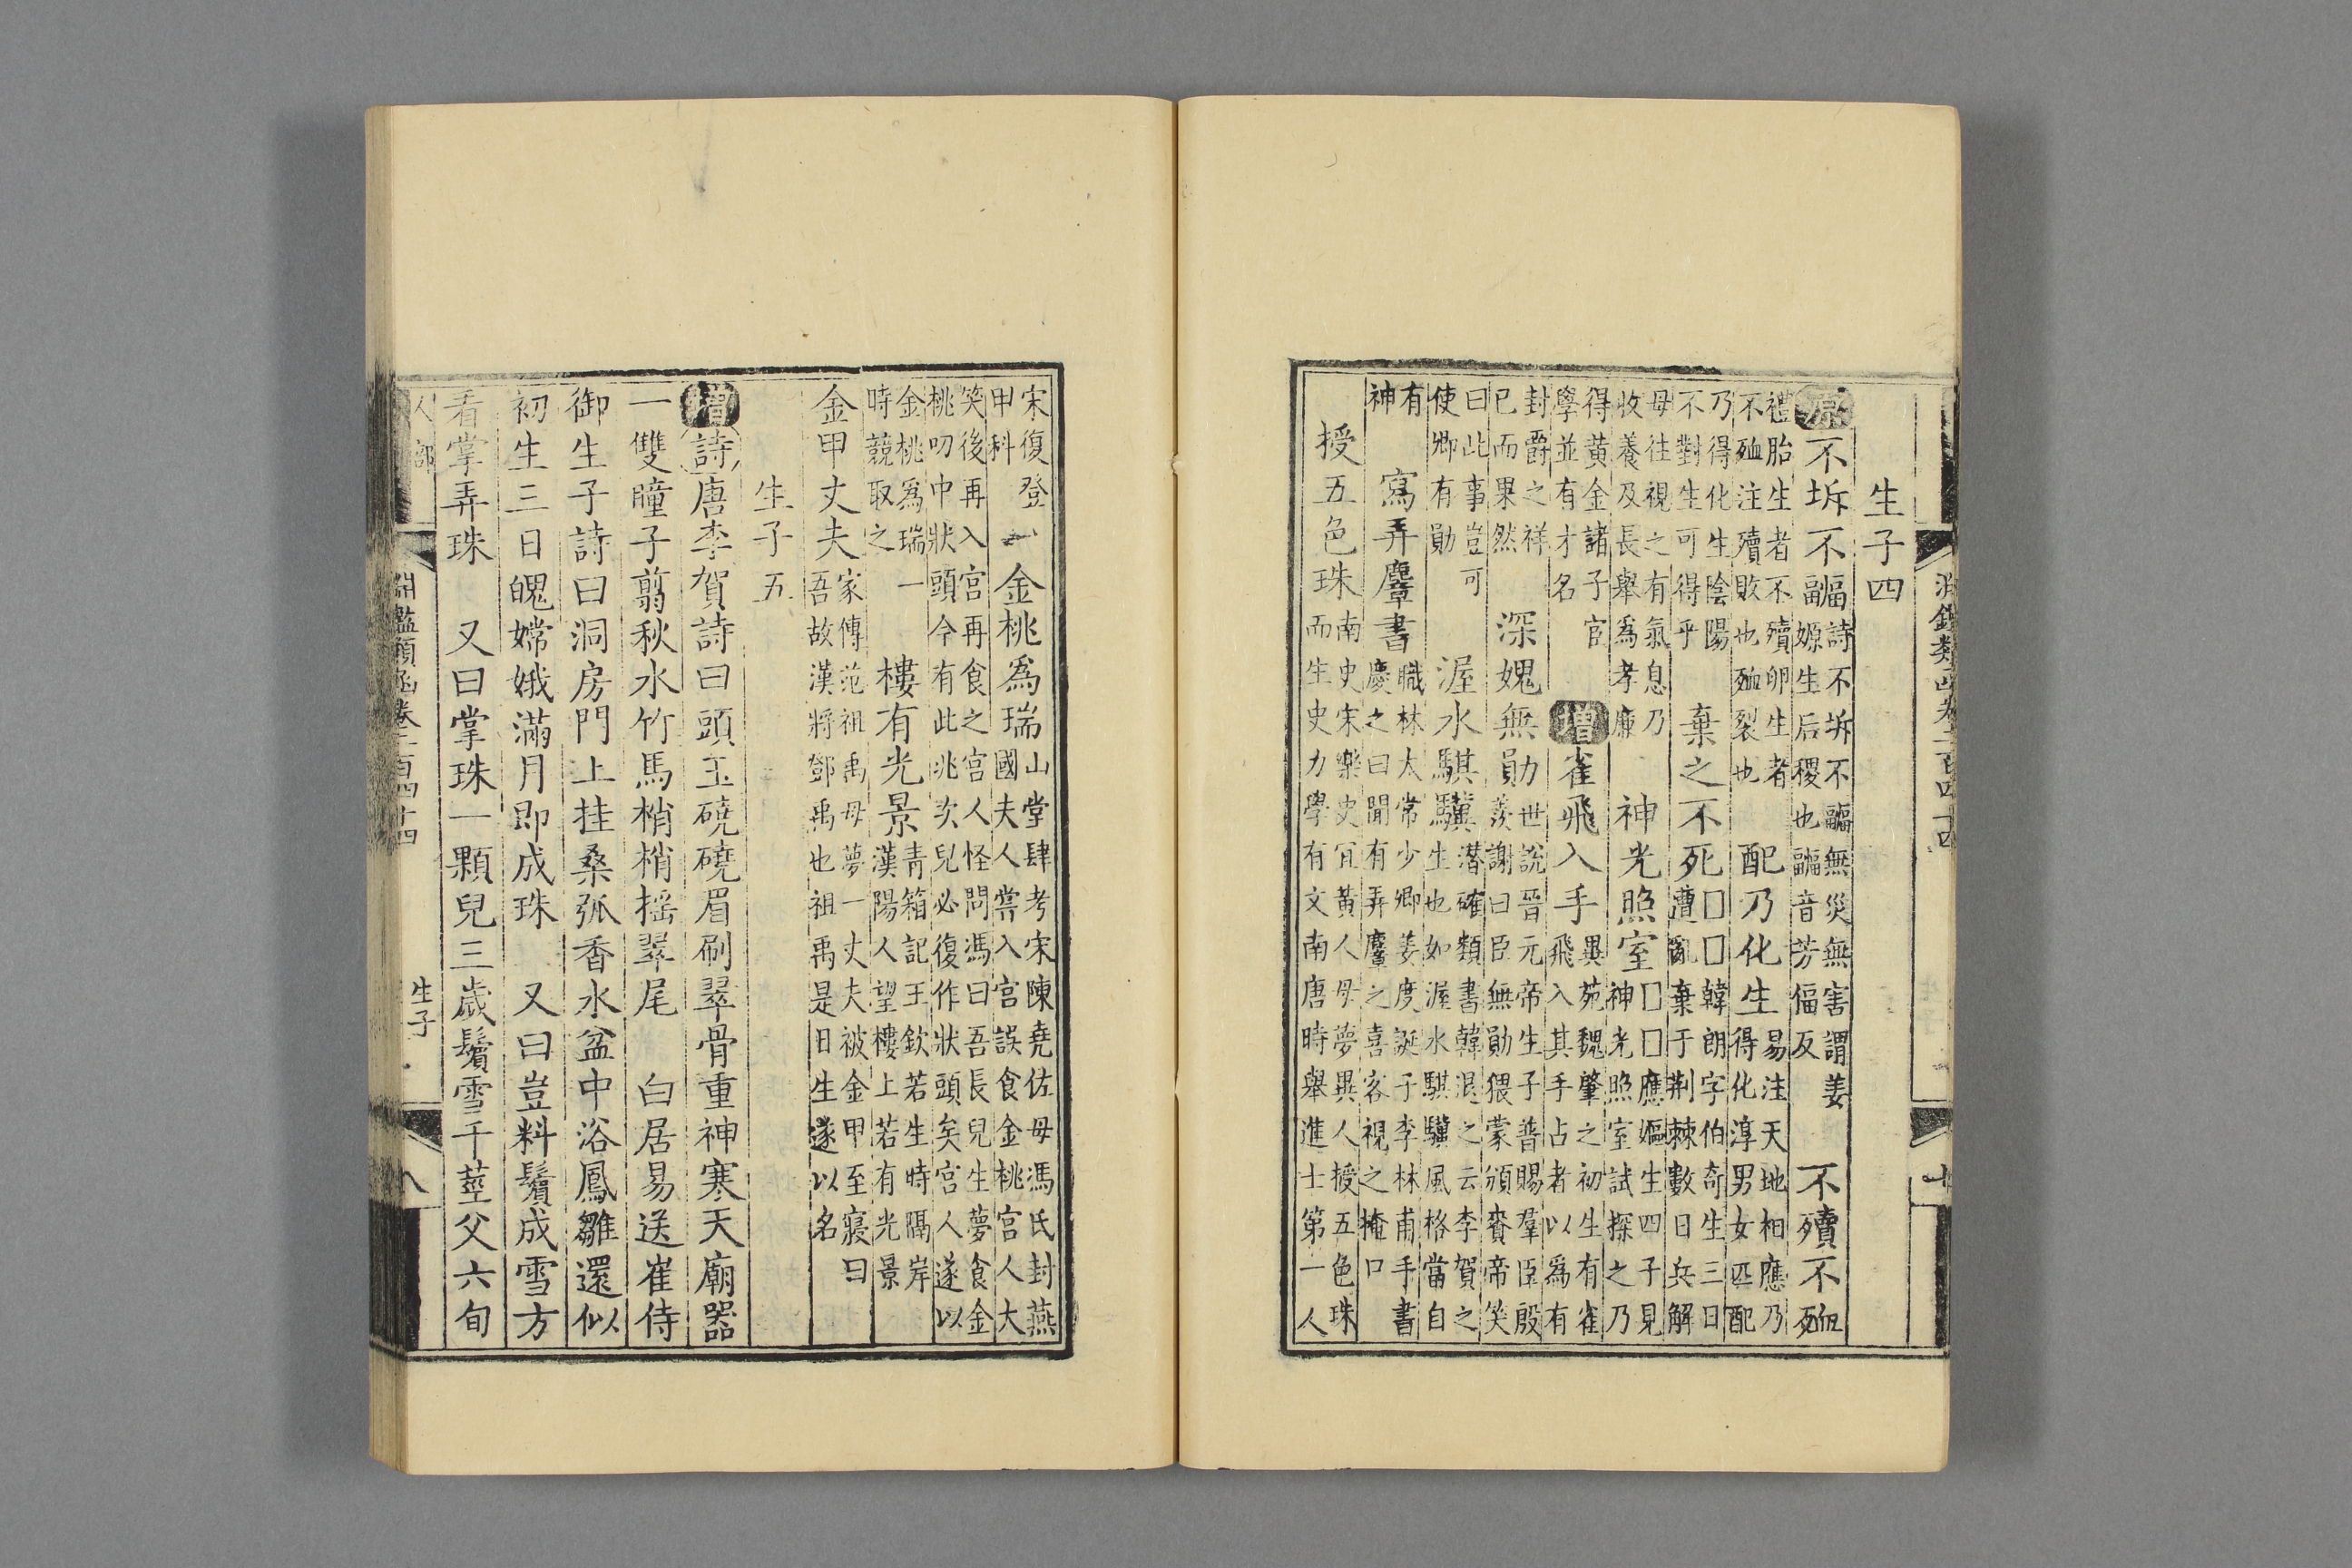 淵鑑類函卷二百四十四 十
生子四
原不坼不副詩不坼不副無災無害謂姜嫄生后稷也副音芳偪反不殰不殈
禮胎生者不殰卵生者不殈注殰敗也殈裂也配乃化生易注天地相應乃得化淳男女匹配
乃得化生陰陽不對生可得乎棄之不死□□韓朗字伯奇生三日遭亂棄于荆棘數日兵解
母往視之有氣息乃收養及長舉爲孝廉神光照室□□應嫗生四子見神光照室試探之乃
得黃金諸子官學並有才名增雀飛入手異苑魏肇之初生有雀飛入其手占者以爲有
封爵之祥已而果然深媿無勛世說晉元帝生子普賜羣臣殷羨謝曰臣無勛猥蒙頒賚帝笑
曰此事豈可使卿有勛渥水騏驥潛確類書韓退之云李賀之生也如渥水騏驥風格當自
有神寫弄麞書職林太常少卿姜度誕子李林甫手書慶之曰聞有弄麞之喜客視之掩口
授五色珠南史宋樂史宜黃人母夢異人授五色珠而生史力學有文南唐時舉進士第一人
宋復登甲科金桃爲瑞山堂肆考宋陳堯佐母馮氏封燕國夫人嘗入宮誤食金桃宮人大
笑後再入宮再食之宮人怪問馮曰吾長兒生夢食金桃叨中狀頭今有此兆次兒必復作狀頭矣宮人遂以
金桃爲瑞一時競取之樓有光景青箱記王欽若生時隔岸漢陽人望樓上若有光景
金甲丈夫家傳范祖禹母夢一丈夫被金甲至寢曰吾故漢將鄧禹也祖禹是日生遂以名
生子五
增詩唐李賀詩曰頭玉磽磽眉刷翠骨重神寒天廟器
一雙瞳子翦秋水竹馬梢梢搖翠尾 白居易送崔侍
御生子詩曰洞房門上挂桑弧香水盆中浴鳳雛還似
初生三日魄嫦娥滿月即成珠 又曰豈料鬢成雪方
看掌弄珠 又曰掌珠一顆兒三歲鬢雪千莖父六旬
人部 淵鑑類函卷二百四十四 生子 八